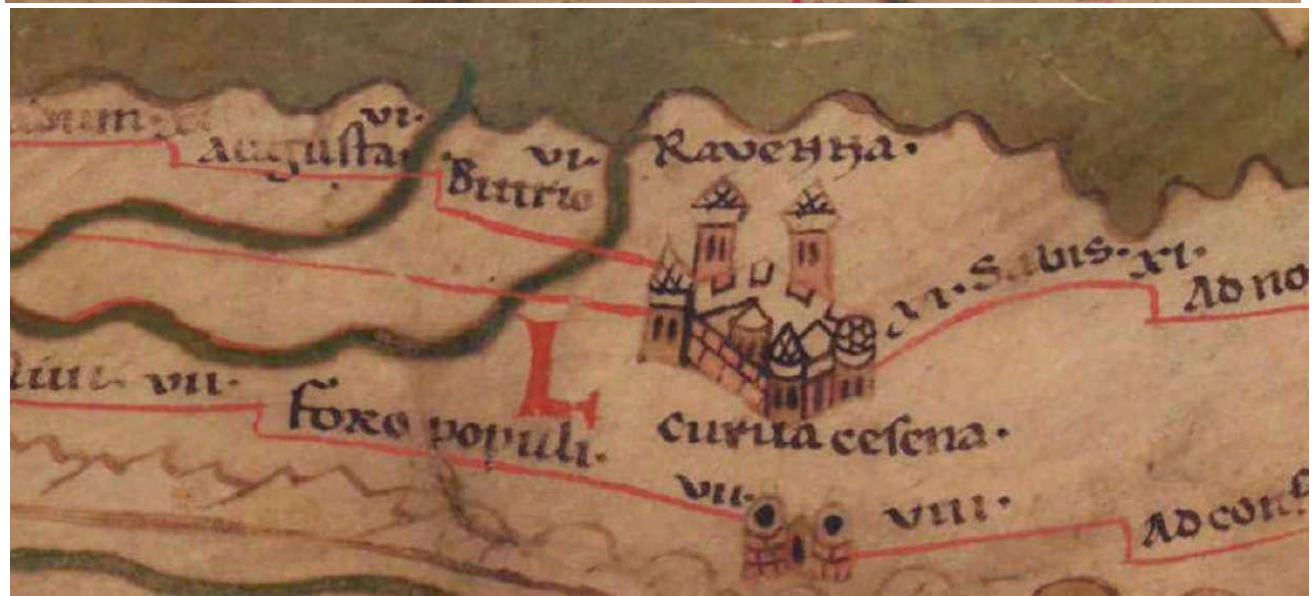 vi.
Augusta.
vi.
Butrio
Ravenna.
Sabis. xi.
Ad no
vii.
foro populi.
L
curua cesena.
vii.
viii.
Ad conf